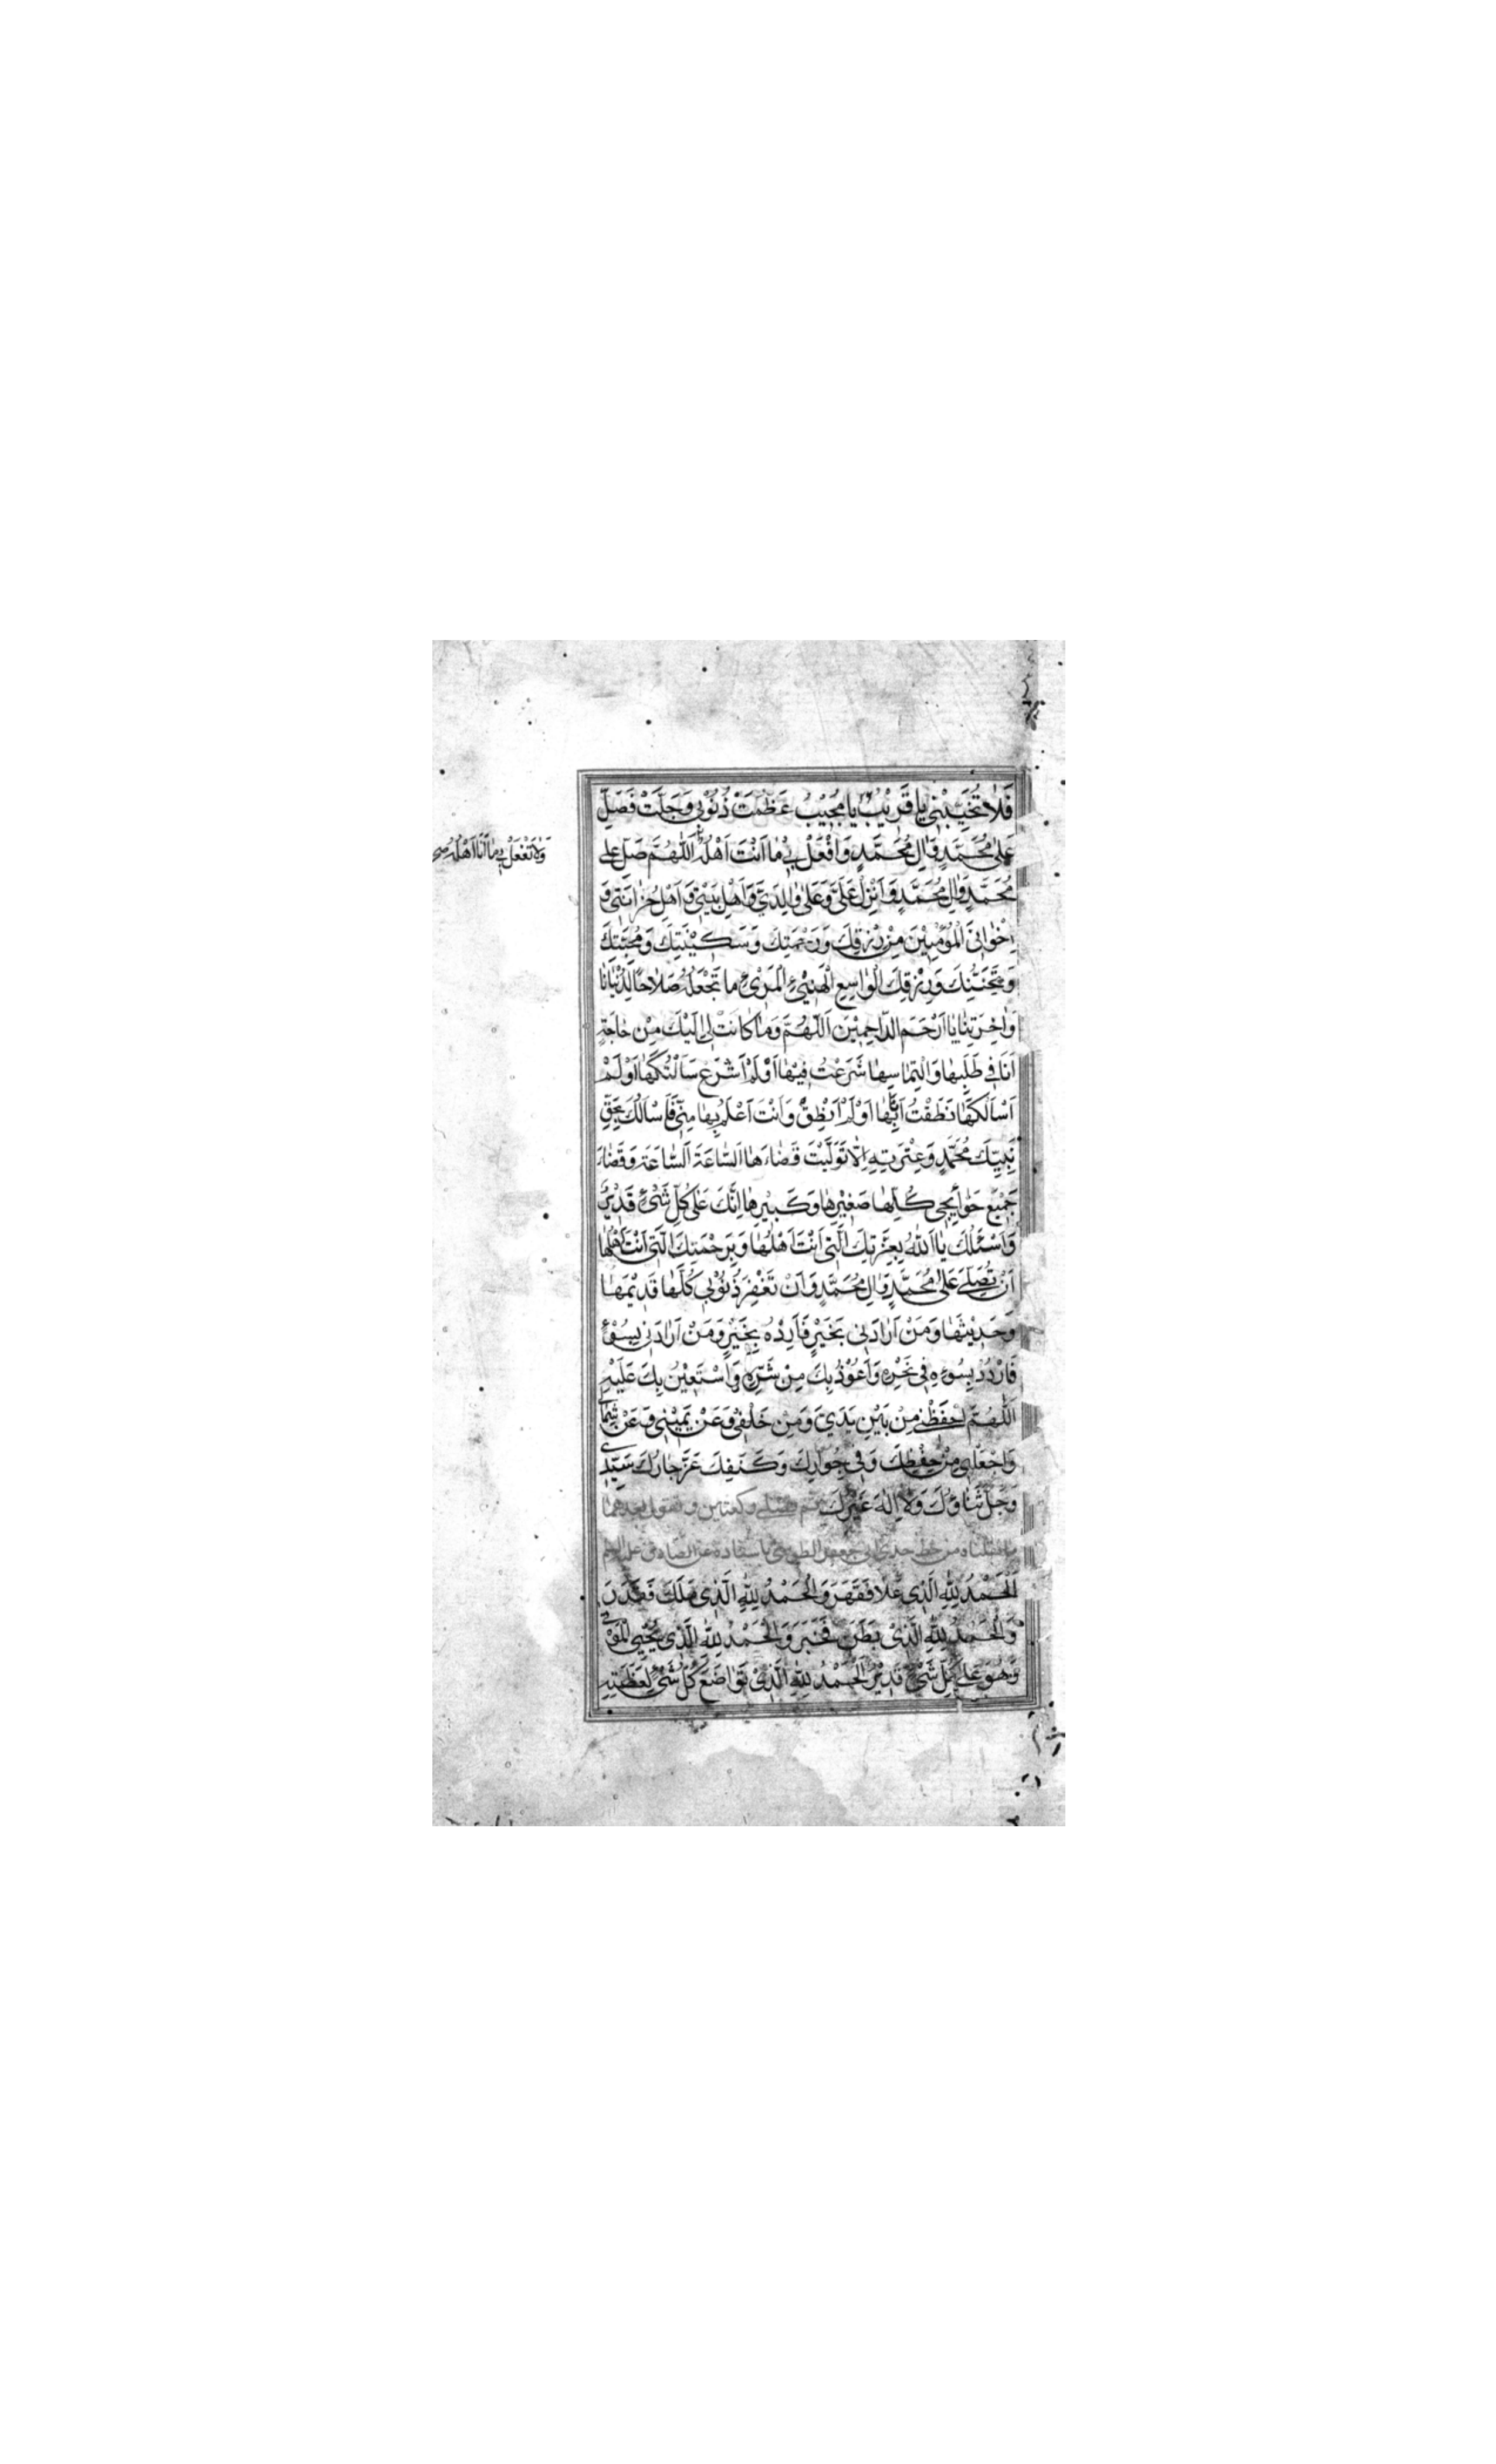 فَلَا تُخَيِّبْنِي يَا قَرِيْبُ يَا مُجِيْبُ عَظُمَتْ ذُنُوْبِي وَجَلَّتْ فَصَلِّ
عَلَى مُحَمَّدٍ وَالِ مُحَمَّدٍ وَافْعَلْ بِي مَا اَنْتَ اَهْلُهُ اَللّٰهُمَّ صَلِّ عَلَى
وَلَا تَفْعَلْ بِي مَا اَنَا اَهْلُهُ صح
مُحَمَّدٍ وَالِ مُحَمَّدٍ وَاَنْزِلْ عَلَيَّ وَعَلَى وَالِدَيَّ وَاَهْلِ بَيْتِي وَاَهْلِ حُزَانَتِي وَ
اِخْوَانِيَ الْمُؤْمِنِيْنَ مِنْ رِزْقِكَ وَرَحْمَتِكَ وَسَكِيْنَتِكَ وَمَحَبَّتِكَ
وَتَحَنُّنِكَ وَرِزْقِكَ الْوَاسِعِ الْهَنِيْءِ الْمَرِيْءِ مَا تَجْعَلُهُ صَلَاحًا لِدُنْيَانَا
وَاٰخِرَتِنَا يَا اَرْحَمَ الرَّاحِمِيْنَ اَللّٰهُمَّ وَمَا كَانَتْ لِي اِلَيْكَ مِنْ حَاجَةٍ
اَنَا فِي طَلَبِهَا وَالْتِمَاسِهَا شَرَعْتُ فِيْهَا اَوْ لَمْ اَشْرَعْ سَاَلْتُكَهَا اَوْ لَمْ
اَسْاَلْكَهَا نَطَقْتُ بِهَا اَوْ لَمْ اَنْطِقْ وَاَنْتَ اَعْلَمُ بِهَا مِنِّي فَاَسْاَلُكَ بِحَقِّ
نَبِيِّكَ مُحَمَّدٍ وَعِتْرَتِهِ اِلَّا تَوَلَّيْتَ قَضَاءَهَا السَّاعَةَ السَّاعَةَ وَقَضَاءَ
جَمِيْعِ حَوَائِجِي كُلِّهَا صَغِيْرِهَا وَكَبِيْرِهَا اِنَّكَ عَلَى كُلِّ شَيْءٍ قَدِيْرٌ
وَاَسْئَلُكَ يَا اَللّٰهُ بِعِزَّتِكَ الَّتِي اَنْتَ اَهْلُهَا وَبِرَحْمَتِكَ الَّتِي اَنْتَ اَهْلُهَا
اَنْ تُصَلِّيَ عَلَى مُحَمَّدٍ وَالِ مُحَمَّدٍ وَاَنْ تَغْفِرَ ذُنُوْبِي كُلَّهَا قَدِيْمَهَا
وَحَدِيْثَهَا وَمَنْ اَرَادَنِي بِخَيْرٍ فَاَرِدْهُ بِخَيْرٍ وَمَنْ اَرَادَنِي بِسُوْءٍ
فَارْدُدْ بِسُوءِهِ فِي نَحْرِهِ وَاَعُوْذُ بِكَ مِنْ شَرِّهِ وَاَسْتَعِيْنُ بِكَ عَلَيْهِ
اَللّٰهُمَّ احْفَظْنِي مِنْ بَيْنِ يَدَيَّ وَمِنْ خَلْفِي وَعَنْ يَمِيْنِي وَعَنْ شِمَالِي
وَاجْعَلْنِي مِنْ حِفْظِكَ وَفِي جِوَارِكَ وَكَنَفِكَ عَزَّ جَارُكَ سَيِّدِي
وَجَلَّ ثَنَاؤُكَ وَلَا اِلٰهَ غَيْرُكَ ثم تصلي ركعتين وتقول بعدهما
ما نقلناه من خط جدي ابي جعفر الطوسي باسناده عن الصادق عليه السلم
اَلْحَمْدُ لِلّٰهِ الَّذِي عَلَا فَقَهَرَ وَالْحَمْدُ لِلّٰهِ الَّذِي مَلَكَ فَقَدَرَ
وَالْحَمْدُ لِلّٰهِ الَّذِيْ بَطَنَ فَخَبَرَ وَالْحَمْدُ لِلّٰهِ الَّذِي يُحْيِي الْمَوْتٰى
وَهُوَ عَلَى كُلِّ شَيْءٍ قَدِيْرٌ اَلْحَمْدُ لِلّٰهِ الَّذِيْ تَوَاضَعَ كُلُّ شَيْءٍ لِعَظَمَتِهِ